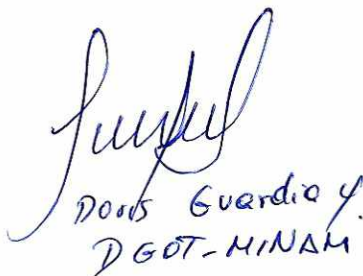 Doris Guardia Y.
DGOT-MINAM